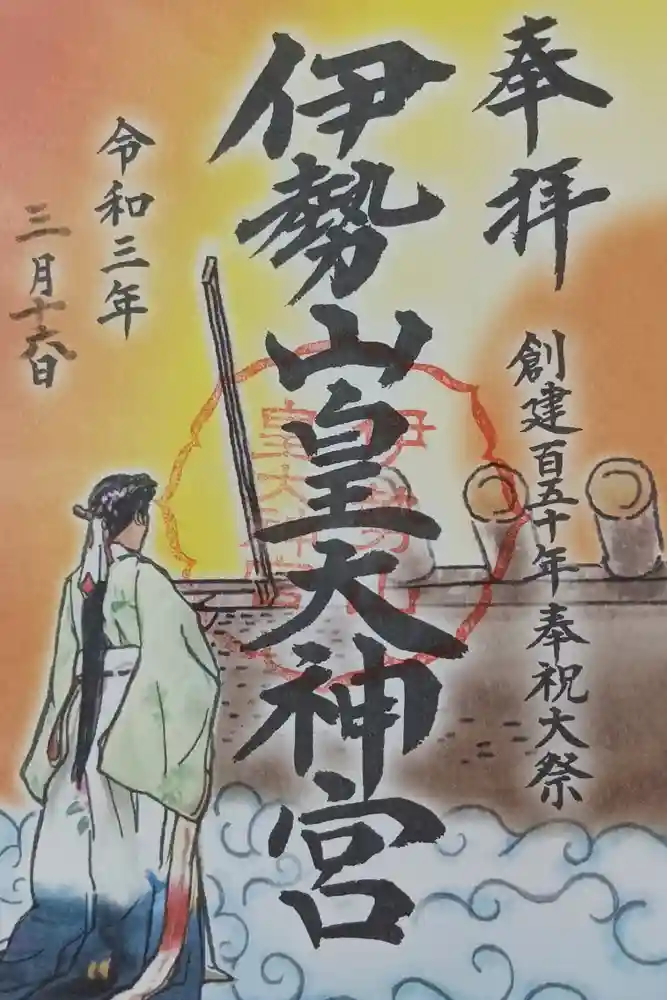 奉拝
創建百五十年奉祝大祭
伊勢山皇大神宮
伊勢山
皇大神宮
令和三年
三月十六日